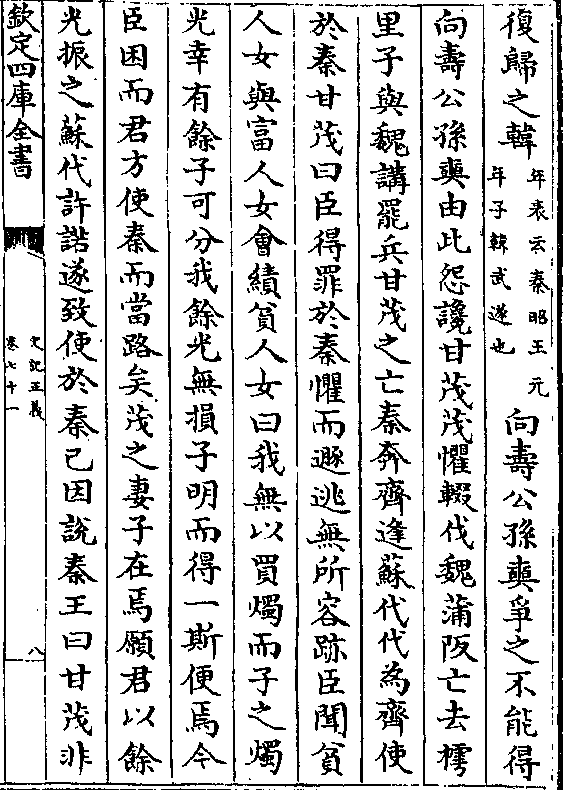 復歸之韓年表云秦昭王元年予韓武遂也向壽公孫奭爭之不能得
向壽公孫奭由此怨讒甘茂茂懼輟伐魏蒲阪亡去樗
里子與魏講罷兵甘茂之亡秦奔齊逢蘇代代為齊使
於秦甘茂曰臣得罪於秦懼而遯逃無所容跡臣聞貧
人女與富人女會績貧人女曰我無以買燭而子之燭
光幸有餘子可分我餘光無損子明而得一斯便焉今
臣困而君方使秦而當路矣茂之妻子在焉願君以餘
光振之蘇代許諾遂致使於秦已因說秦王曰甘茂非
欽定四庫全書
史記正義
卷七十一
八